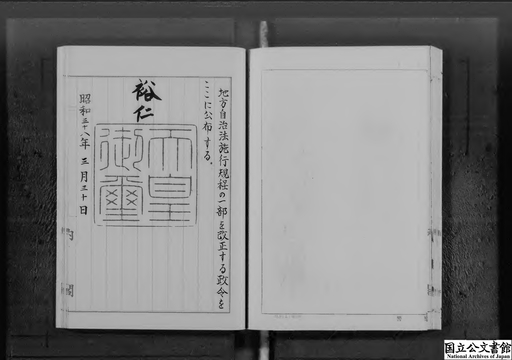 地方自治法施行規程の一部を改正する政令を
ここに公布する。
裕仁
天皇
御璽
昭和三十八年三月三十日
内閣
国立公文書館
National Archives of Japan